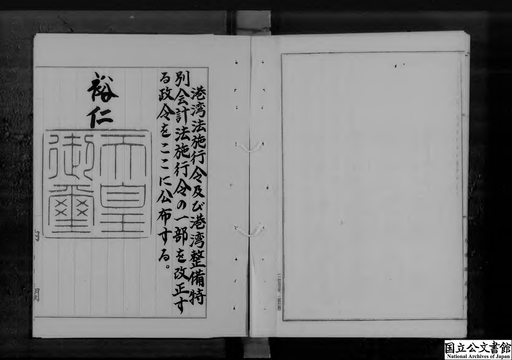 港湾法施行令及び港湾整備特
別会計法施行令の一部を改正す
る政令をここに公布する。
裕仁
天皇
御璽
国立公文書館
National Archives of Japan